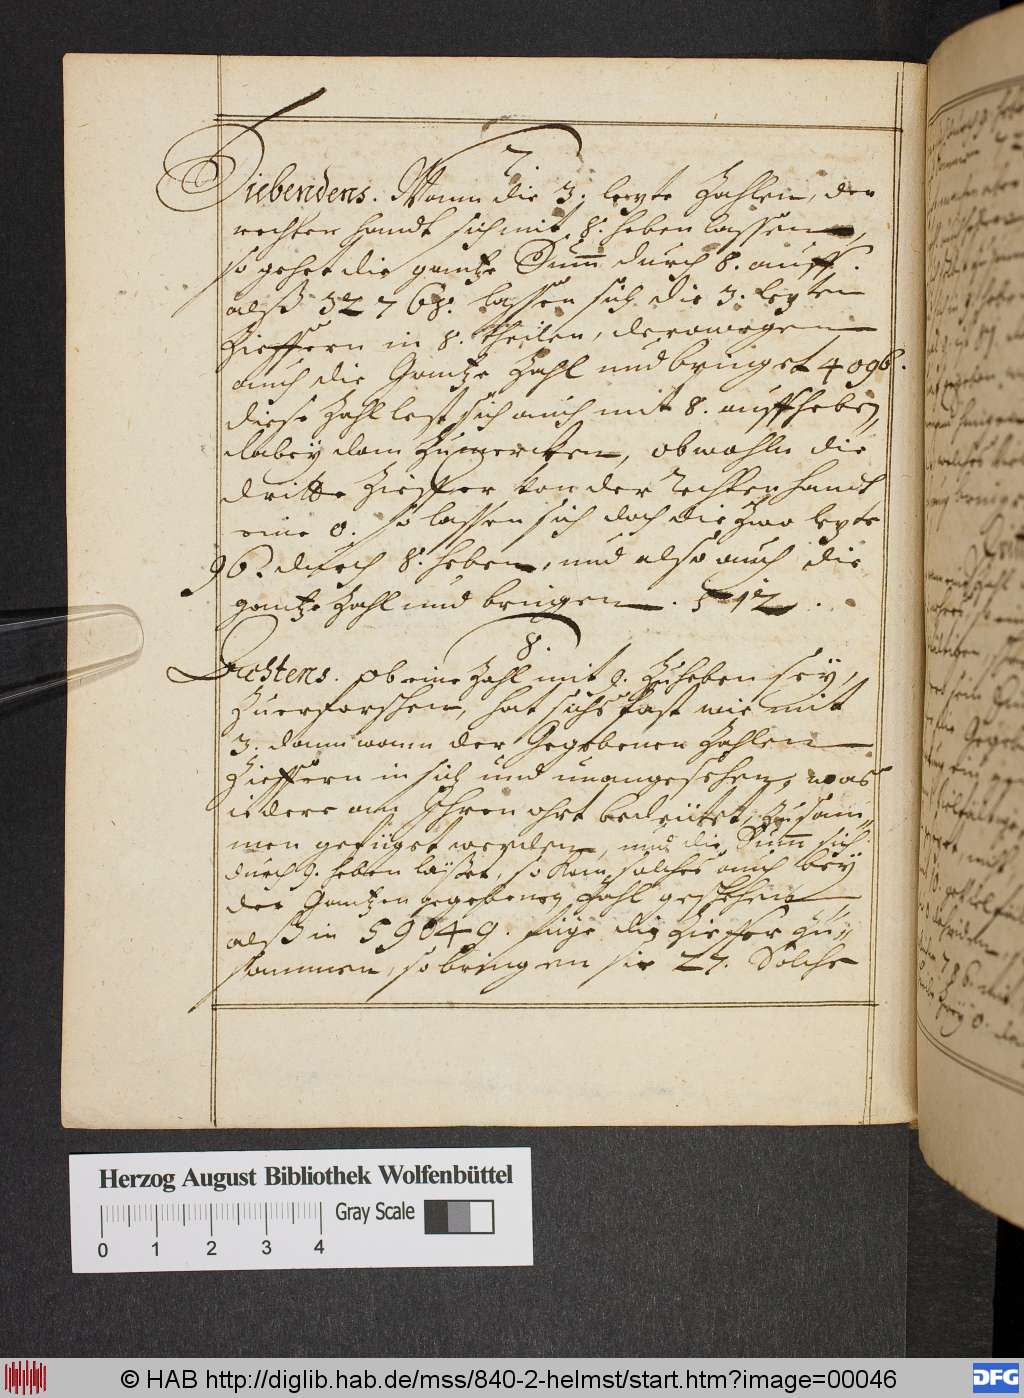 7.
Siebendens. Wann die 3. letzte Zahlen, der
rechten Handt sich mit 8. heben lassen,
so gehet die gantze Sum̅ durch 8. auff.
alß 32768. lassen sich die 3. letzten
Zieffern in 8. theilen, derowegen
auch die Gantze Zahl und bringet 4096.
diese Zahl lest sich auch mit 8. auffheben,
dabey dann zumercken, obwohln die
dritte Zieffer von der Rechten handt
eine 0. so lassen sich doch die zwo letzte
96. durch 8. heben, und also auch die
gantze Zahl und bringen. 512.
8.
Achtens. Ob eine Zahl mit 9. zuheben sey,
zuerforschen, hat sichs fast wie mit
3. dann wann der Gegebenen Zahlen
Zieffern in sich und unangesehen, was
iedere an Ihren ohrt bedeütet, zusam⸗
men gefüget werden, und die Sum̅ sich
durch 9. heben laßet, so kan solches auch bey
der Gantzen gegebenen Zahl geschehen
alß in 59049. füge die Zieffer zu⸗
sammen, so bringen sie 27. Solche
Herzog August Bibliothek Wolfenbüttel
Gray Scale
0 1 2 3 4
© HAB http://diglib.hab.de/mss/840-2-helmst/start.htm?image=00046
DFG